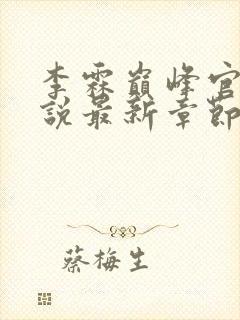 李霖巔峰官
說最新章節
蔡梅生